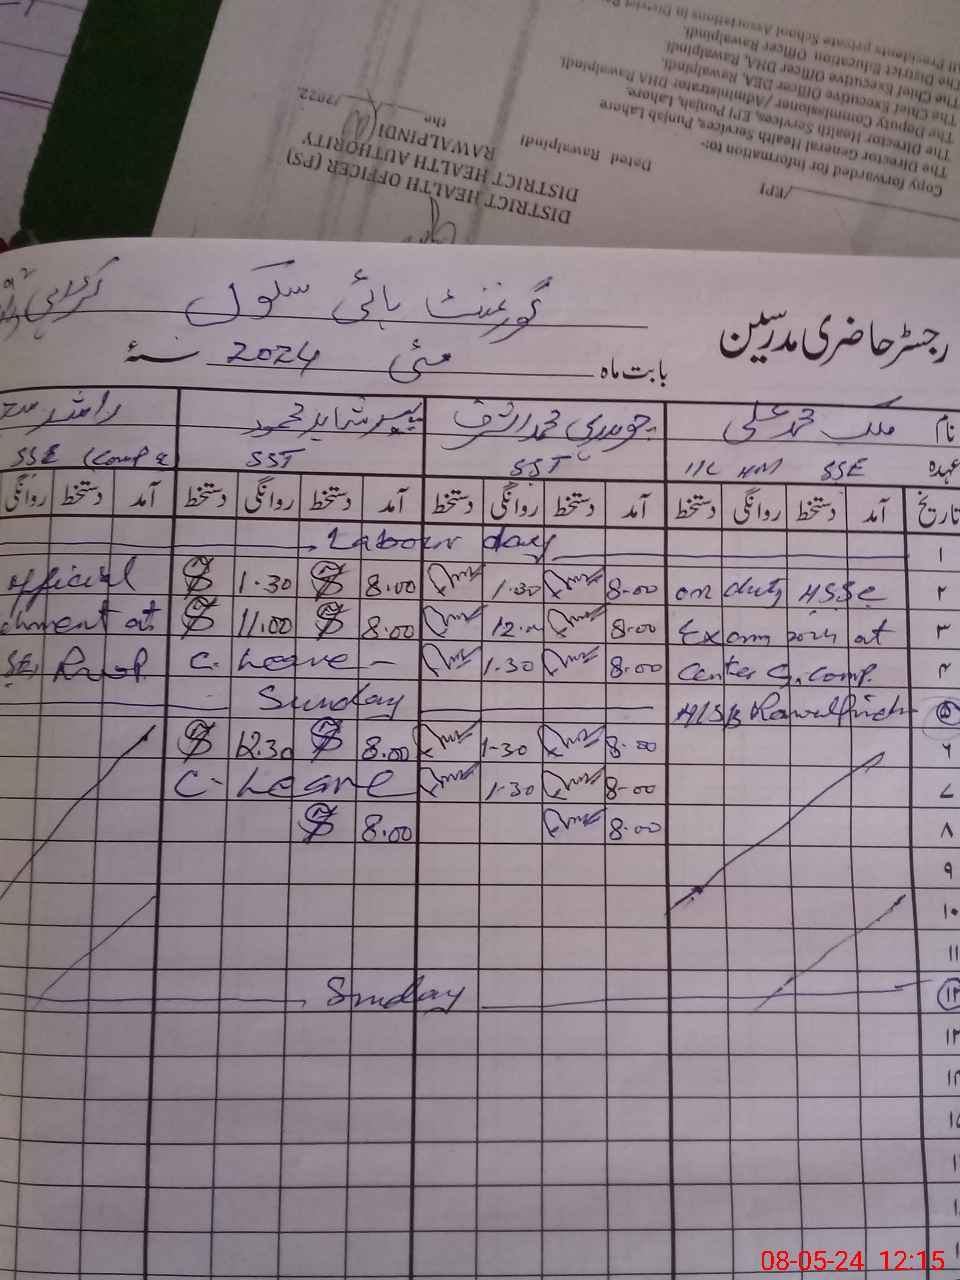 All Presidents private School Associations in District
The District Education Officer Rawalpindi.
The Chief Executive Officer DEA, Rawalpindi.
The Chief Executive Officer DHA, Rawalpindi.
The Deputy Commissioner /Administrator DHA Rawalpindi.
The Director Health Services, EPI Punjab, Lahore.
The Director General Health Services, Punjab Lahore
Copy forwarded for information to:-
/EPI Dated Rawalpindi the /2022.
DISTRICT HEALTH OFFICER (PS)
DISTRICT HEALTH AUTHORITY
RAWALPINDI
گورنمنٹ ہائی سکول
رجسٹر حاضری مدرسین
بابت ماہ مئی 2024 سنہ
نام ملک محمد علی چوہدری محمد اشرف شاہد محمود راشد
عہدہ SSE I/C HM SST SST SSE (Comp
تاریخ آمد دستخط روانگی دستخط آمد دستخط روانگی دستخط آمد دستخط روانگی دستخط آمد دستخط روانگی
۱ Labour day
۲ on duty HSSC 8.00 1.30 8.00 1.30 official
۳ Exam at 8.00 12. 8.00 11.00 at
۴ Center G. Comp. 8.00 1.30 C. Leave
۵ Rawalpindi Sunday
۶ 8.00 1-30 8.00 12.30
۷ 8-00 1-30 C- Leave
۸ 8.00 8.00
۹
۱۰
۱۱
۱۲ Sunday
08-05-24 12:15